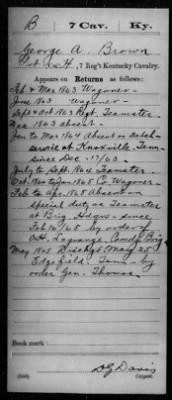 B 7 Cav. Ky.
George A. Brown
Co. H, 7 Reg't Kentucky Cavalry.
Appears on Returns as follows:
Feb & Mar 1863 Wagoner
June 1863 Wagoner
Sept & Oct 1863 Regt. Teamster
Nov 1863 absent
Jan to Mar 1864 Absent on detch
service at Knoxville Tenn
since Dec. 17/63
July to Sept. 1864 Teamster
Oct. Nov to Jan 1865 Co. Wagoner
Feb to Apr. 1865 Absent on
special duty as Teamster
at Brig. Hdqrs. since
Feb 16/65 by order of
O.H. Lagrange Comdg Brig
May 1865 Disch'd May 25
Edgefield Tenn by
order Gen. Thomas
Book mark:
D G Davis
(546) Copyist.